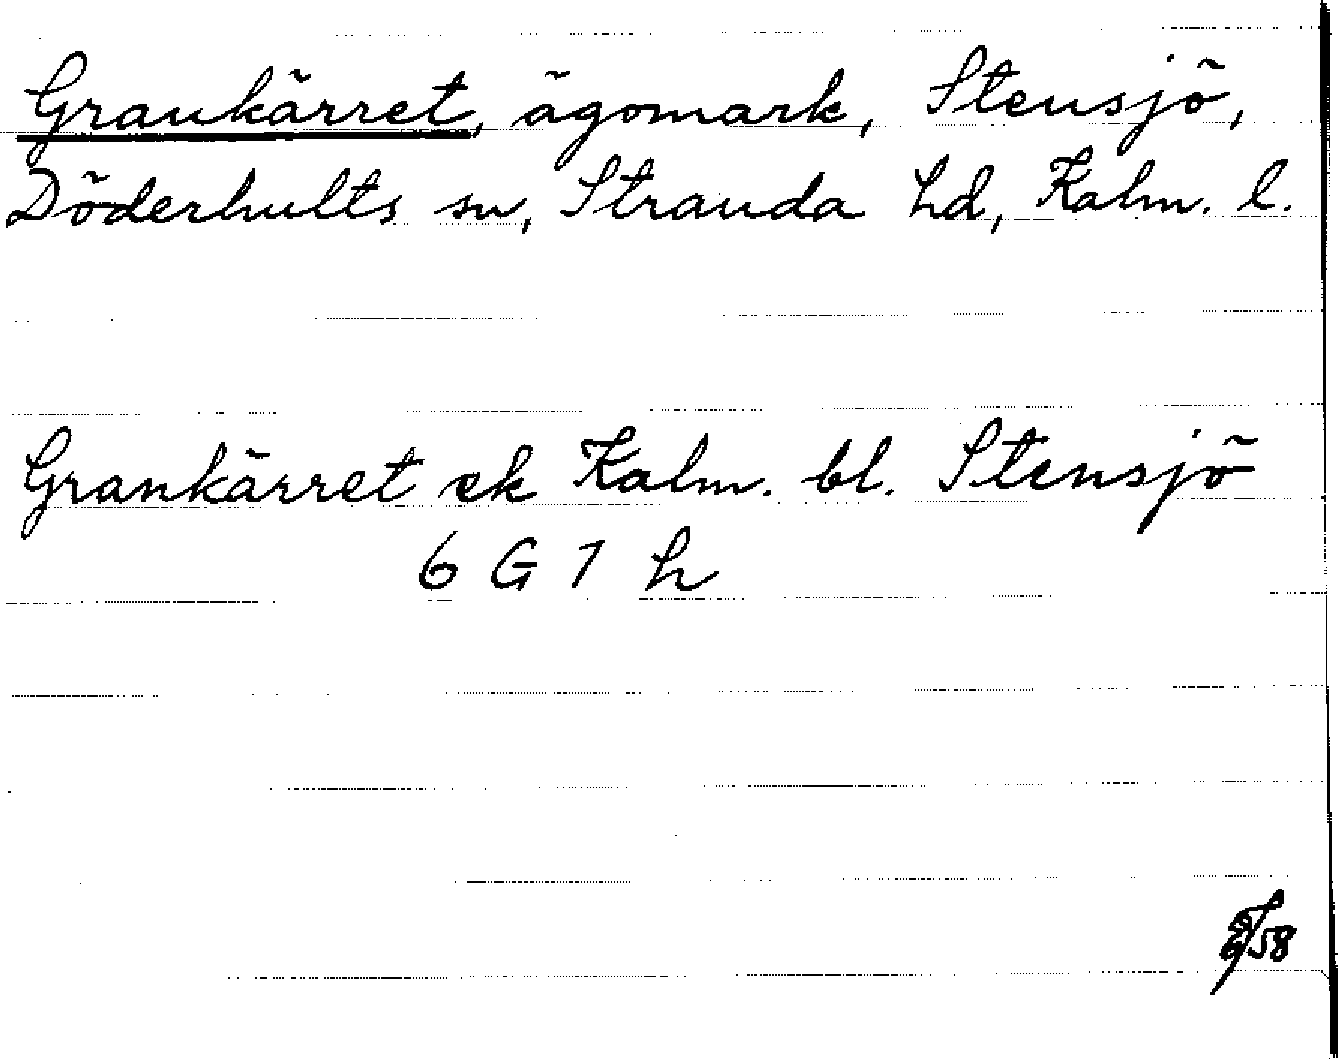 Grankärret, ägomark, Stensjö,
Döderhults sn, Stranda hd, Kalm. l.
Grankärret ek Kalm. bl. Stensjö
6 G 7 h